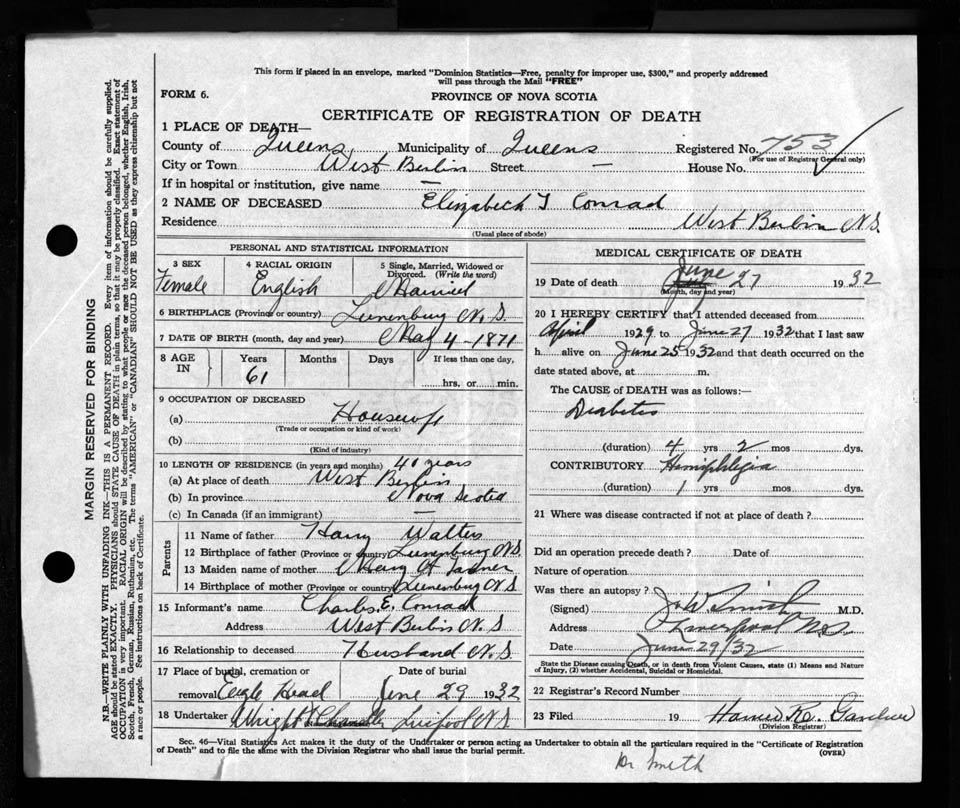 This form if placed in an envelope, marked "Dominion Statistics—Free, penalty for improper use, $300," and properly addressed
will pass through the Mail "FREE"
FORM 6.
PROVINCE OF NOVA SCOTIA
CERTIFICATE OF REGISTRATION OF DEATH
1 PLACE OF DEATH—
County of Queens, Municipality of Queens Registered No. 753
(For use of Registrar General only)
City or Town West Berlin Street — House No.
If in hospital or institution, give name —
2 NAME OF DECEASED Elizabeth T Conrad
Residence West Berlin N.S.
(Usual place of abode)
PERSONAL AND STATISTICAL INFORMATION
3 SEX 4 RACIAL ORIGIN 5 Single, Married, Widowed or
Divorced. (Write the word)
Female English Married
6 BIRTHPLACE (Province or country) Lunenburg N.S.
7 DATE OF BIRTH (month, day and year) May 4-1871
8 AGE IN Years Months Days If less than one day,
61 hrs. or min.
9 OCCUPATION OF DECEASED
(a) Housewife
(Trade or occupation or kind of work)
(b)
(Kind of industry)
10 LENGTH OF RESIDENCE (in years and months) 40 years
(a) At place of death West Berlin
(b) In province Nova Scotia
(c) In Canada (if an immigrant) —
Parents
11 Name of father Harry Walters
12 Birthplace of father (Province or country) Lunenburg N.S.
13 Maiden name of mother Mary A
14 Birthplace of mother (Province or country) Lunenburg N.S
15 Informant's name Charles E. Conrad
Address West Berlin N.S
16 Relationship to deceased Husband N.S.
17 Place of burial, cremation or Date of burial
removal Eagle Head June 29 1932
18 Undertaker Wright N.S
MEDICAL CERTIFICATE OF DEATH
19 Date of death June 27 1932
(Month, day and year)
20 I HEREBY CERTIFY that I attended deceased from
April 1929 to June 27 1932 that I last saw
h alive on June 25 1932 and that death occurred on the
date stated above, at m.
The CAUSE of DEATH was as follows:—
Diabetes
(duration) 4 yrs 2 mos dys.
CONTRIBUTORY Hemiphlegia
(duration) 1 yrs mos dys.
21 Where was disease contracted if not at place of death?
Did an operation precede death? Date of
Nature of operation
Was there an autopsy?
(Signed) J.W. Smith M.D.
Address Liverpool N.S.
Date June 29/32
State the Disease causing Death, or in death from Violent Causes, state (1) Means and Nature
of Injury, (2) whether Accidental, Suicidal or Homicidal.
22 Registrar's Record Number
23 Filed 19 Gardner
(Division Registrar)
Sec. 46—Vital Statistics Act makes it the duty of the Undertaker or person acting as Undertaker to obtain all the particulars required in the "Certificate of Registration
of Death" and to file the same with the Division Registrar who shall issue the burial permit. (OVER)
Dr Smith
MARGIN RESERVED FOR BINDING
N.B.—WRITE PLAINLY WITH UNFADING INK—THIS IS A PERMANENT RECORD. Every item of information should be carefully supplied.
AGE should be stated EXACTLY. PHYSICIANS should STATE CAUSE OF DEATH in plain terms, so that it may be properly classified. Exact statement of
OCCUPATION is very important. RACIAL ORIGIN will be described by stating to what people or race the deceased person belonged, whether English, Irish,
Scotch, French, German, Russian, Ruthenian, etc. The terms "AMERICAN" or "CANADIAN" SHOULD NOT BE USED as they express citizenship but not
a race or people. See instructions on back of Certificate.